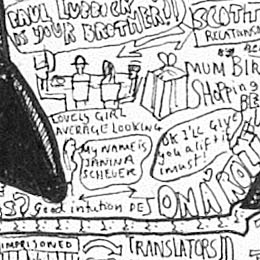 PAUL LUBBOCK
IN YOUR BROTHER!
SCOTT
RELATIONS
MUM BIR
Shopping
LOVELY GIRL
AVERAGE LOOKING
My NAME iS
JANINA
SCHEUER
OK I'LL GIVE
you a lift if
i must!
ON A ROL
S? Good intution DES
IMPRISONED
[TRANSLATORS]